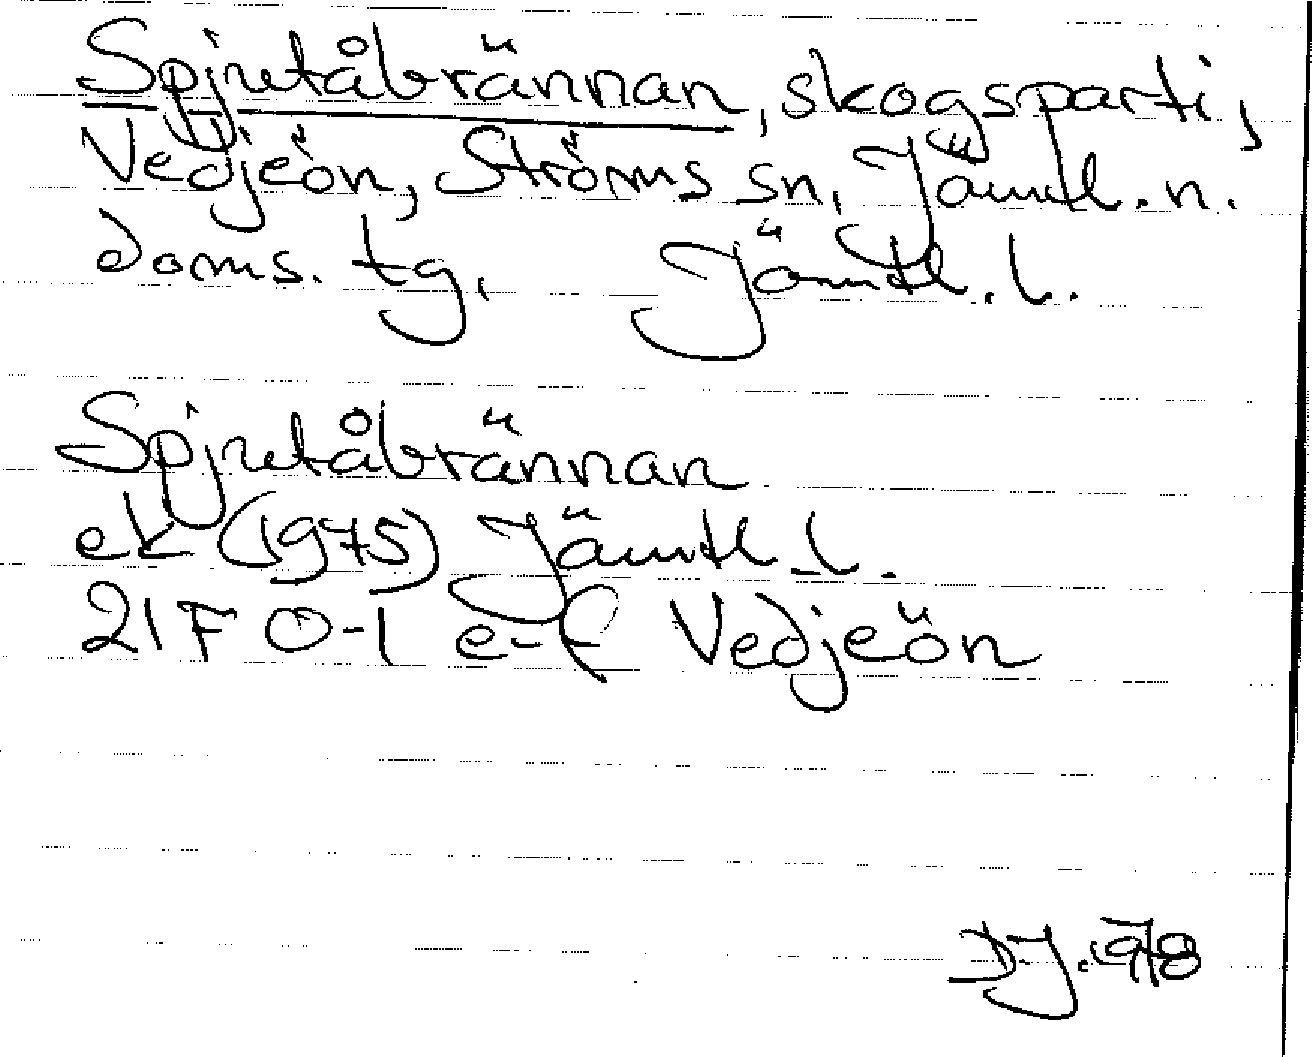 Spjutåbrännan, skogsparti,
Vedjeön, Ströms sn, Jämtl. n.
doms. tg. Jämtl. l.
Spjutåbrännan
ek (1975) Jämtl. l.
21F 0-1 e-f Vedjeön
DJ. 1978